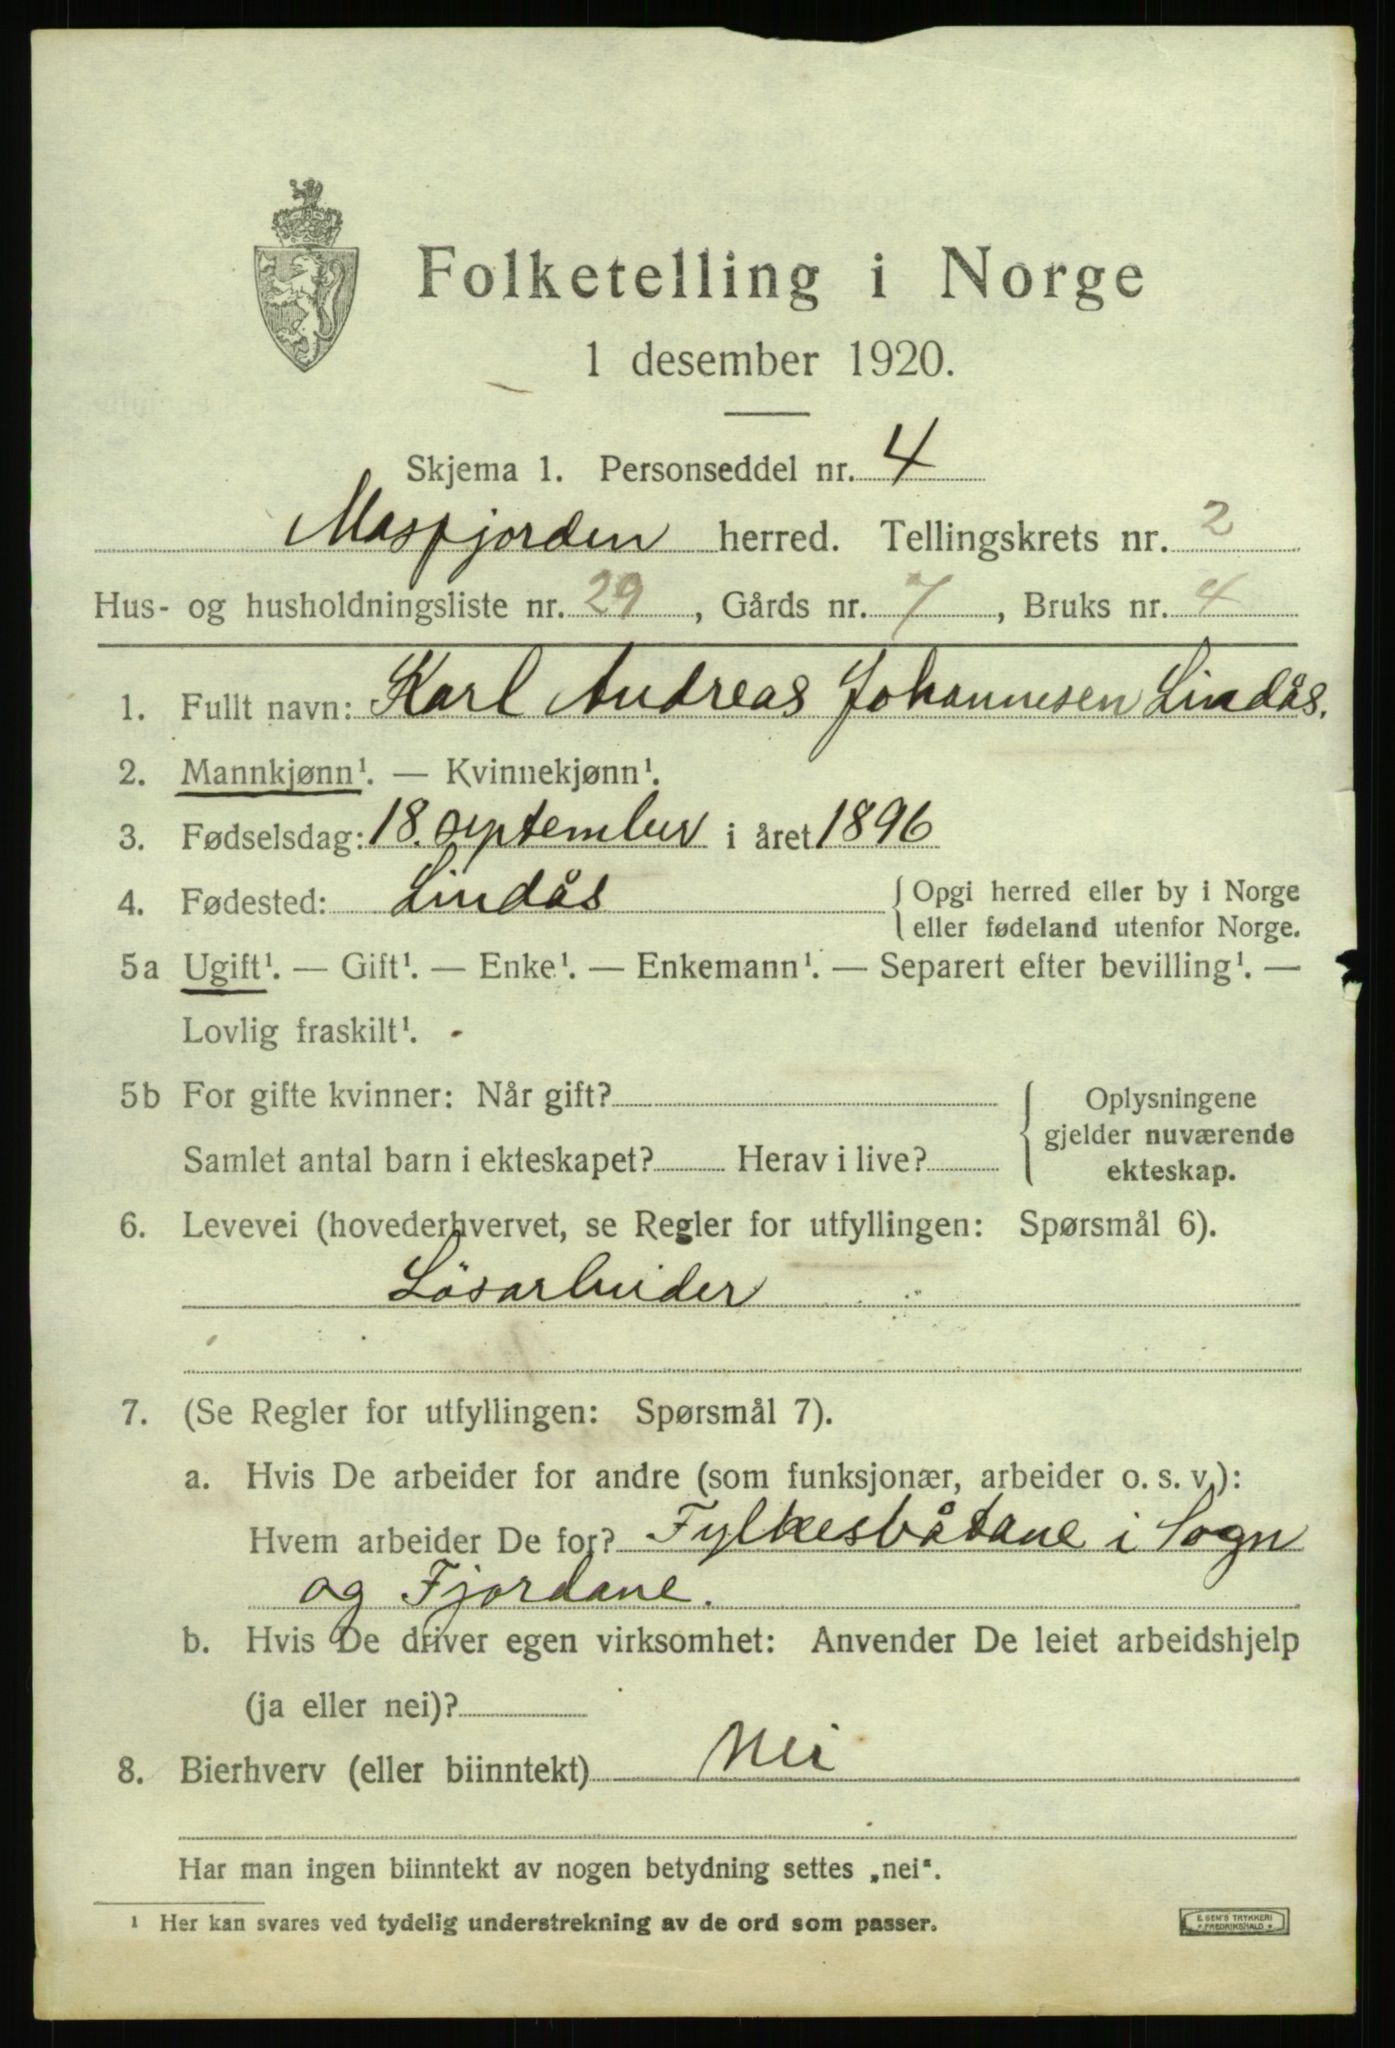 Folketelling i Norge
1 desember 1920.
Skjema 1. Personseddel nr. 4
Masfjorden herred. Tellingskrets nr. 2
Hus- og husholdningsliste nr. 29, Gårds nr. 7, Bruks nr. 4
1. Fullt navn: Karl Andreas Johannesen Lindås.
2. Mannkjønn¹. — Kvinnekjønn¹.
3. Fødselsdag: 18. september i året 1896
4. Fødested: Lindås { Opgi herred eller by i Norge
eller fødeland utenfor Norge.
5a Ugift¹. — Gift¹. — Enke¹. — Enkemann¹. — Separert efter bevilling¹. —
Lovlig fraskilt¹.
5b For gifte kvinner: Når gift? { Oplysningene
gjelder nuværende
Samlet antal barn i ekteskapet? Herav i live? ekteskap.
6. Levevei (hovederhvervet, se Regler for utfyllingen: Spørsmål 6).
Lösarbeider
7. (Se Regler for utfyllingen: Spørsmål 7).
a. Hvis De arbeider for andre (som funksjonær, arbeider o. s. v.):
Hvem arbeider De for? Fylkesbåtane i Sogn
og Fjordane.
b. Hvis De driver egen virksomhet: Anvender De leiet arbeidshjelp
(ja eller nei)?
8. Bierhverv (eller biinntekt) Nei
Har man ingen biinntekt av nogen betydning settes „nei“.
¹ Her kan svares ved tydelig understrekning av de ord som passer.
E. SEM'S TRYKKERI
FREDRIKSHALD